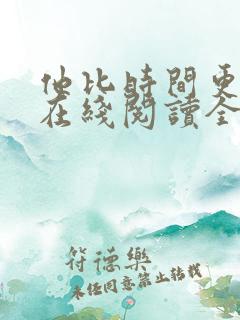 他比時間更
在綫閱讀全
符德樂
未經同意禁止轉載